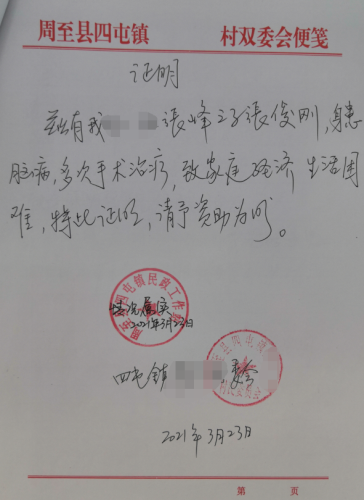 周至县四屯镇 村双委会便笺
证明
兹有我 张峰之子张俊刚,身患
脑病,多次手术治疗,致家庭经济生活困
难,特此证明,请予资助为盼。
四屯镇民政工作
情况属实
2021年3月23日
四屯镇 委会
县四屯镇
2021年3月23日
第 页